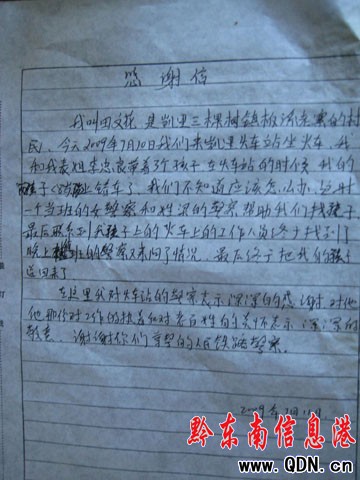 感谢信
我叫田文花 是凯里三棵树镇板流东寨的村
民,今天2009年7月10日我们来凯里火车站坐火车,我
和我表姐李忠良带着孩子在火车站的时候 我的
孩子 上错车了,我们不知道应该怎么办,当时
一个当班的女警察和姓梁的警察帮助我们找孩子
最后 孩子上的火车上的工作人员终于找到了
晚上 班的警察又来问了情况,最后终于把我的孩子
送回来了
在这里我对火车站的警察表示深深的感谢,对他
他们对工作的执着和对老百姓的关怀表示深深的
敬意,谢谢你们 的人民铁路警察。
2009年7月
黔东南信息港
www.QDN.cn